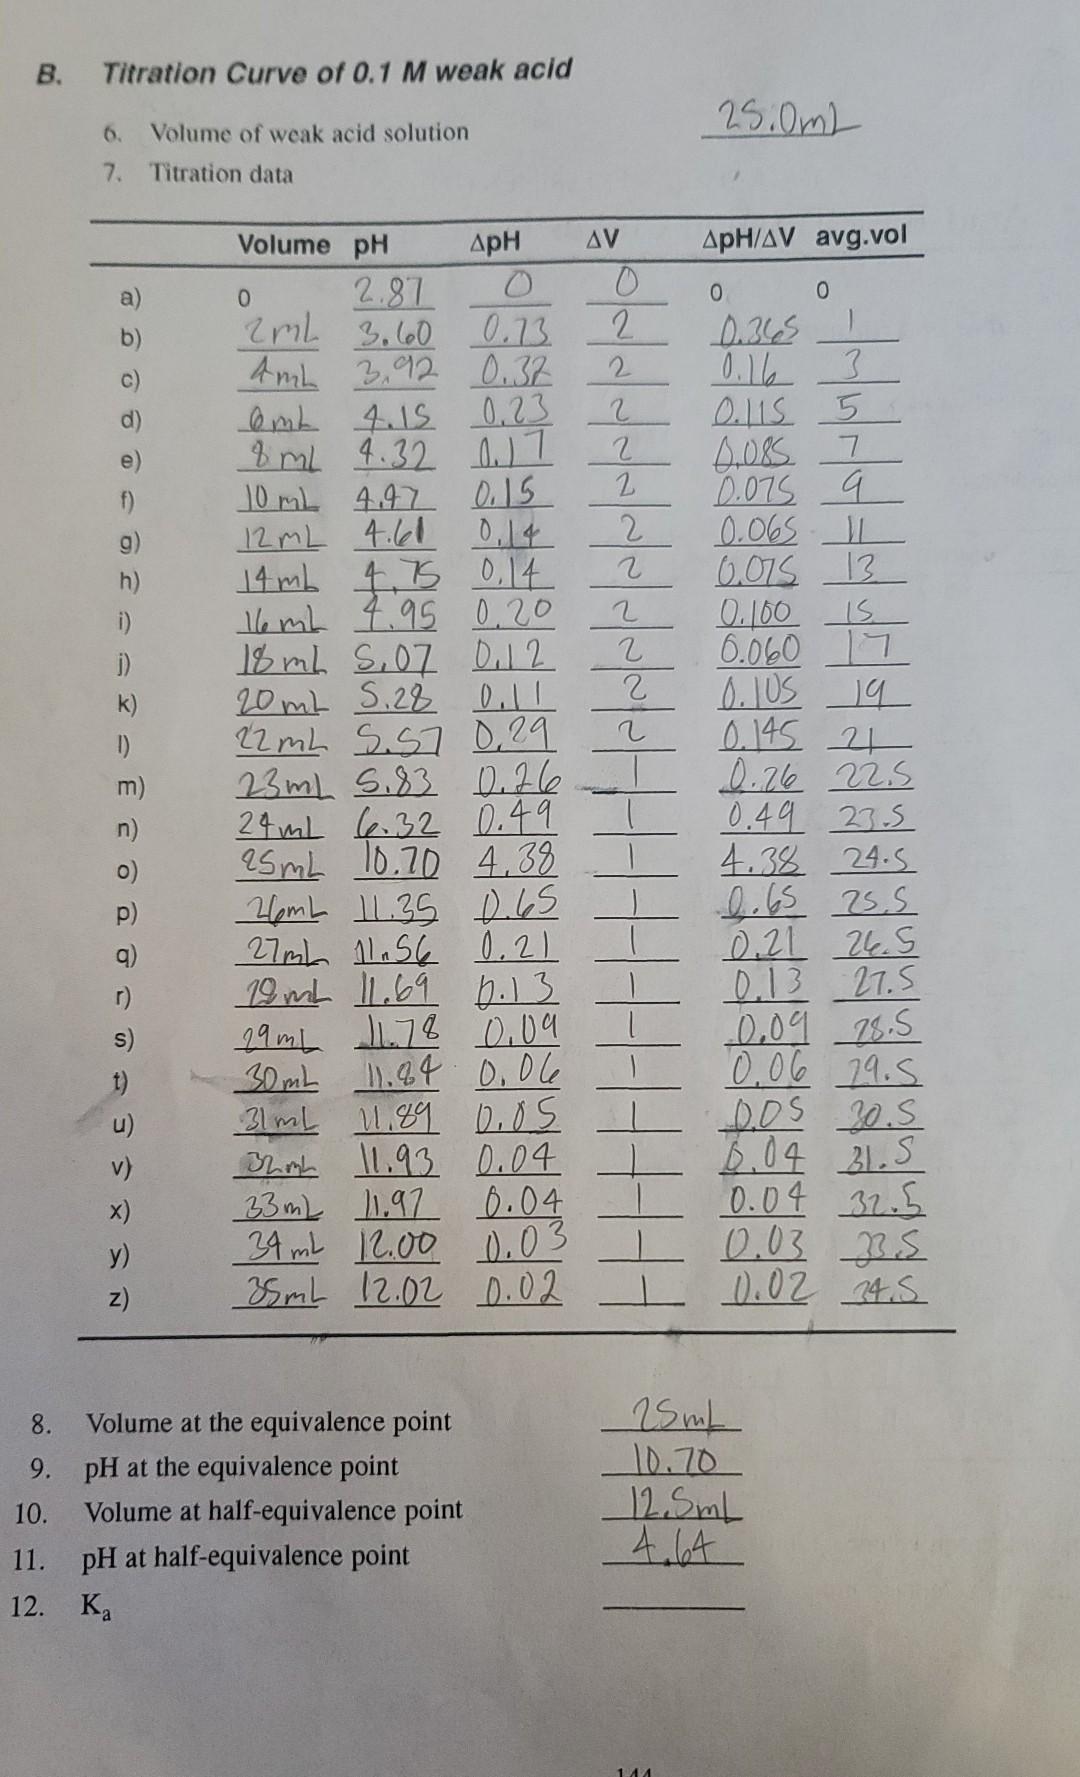 B. Titration Curve of 0.1 M weak acid
6. Volume of weak acid solution 25.0mL
7. Titration data
Volume pH ΔpH ΔV ΔpH/ΔV avg.vol
a) 0 2.87 0 0 0 0
b) 2mL 3.60 0.73 2 0.365 1
c) 4mL 3.92 0.32 2 0.16 3
d) 6mL 4.15 0.23 2 0.115 5
e) 8mL 4.32 0.17 2 0.085 7
f) 10mL 4.47 0.15 2 0.075 9
g) 12mL 4.61 0.14 2 0.065 11
h) 14mL 4.75 0.14 2 0.075 13
i) 16mL 4.95 0.20 2 0.100 15
j) 18mL 5.07 0.12 2 0.060 17
k) 20mL 5.28 0.11 2 0.105 19
l) 22mL 5.57 0.29 2 0.145 21
m) 23mL 5.83 0.26 1 0.26 22.5
n) 24mL 6.32 0.49 1 0.49 23.5
o) 25mL 10.70 4.38 1 4.38 24.5
p) 26mL 11.35 0.65 1 0.65 25.5
q) 27mL 11.56 0.21 1 0.21 26.5
r) 28mL 11.69 0.13 1 0.13 27.5
s) 29mL 11.78 0.09 1 0.09 28.5
t) 30mL 11.84 0.06 1 0.06 29.5
u) 31mL 11.89 0.05 1 0.05 30.5
v) 32mL 11.93 0.04 1 0.04 31.5
x) 33mL 11.97 0.04 1 0.04 32.5
y) 34mL 12.00 0.03 1 0.03 33.5
z) 35mL 12.02 0.02 1 0.02 34.5
8. Volume at the equivalence point 25mL
9. pH at the equivalence point 10.70
10. Volume at half-equivalence point 12.5mL
11. pH at half-equivalence point 4.64
12. Ka
144